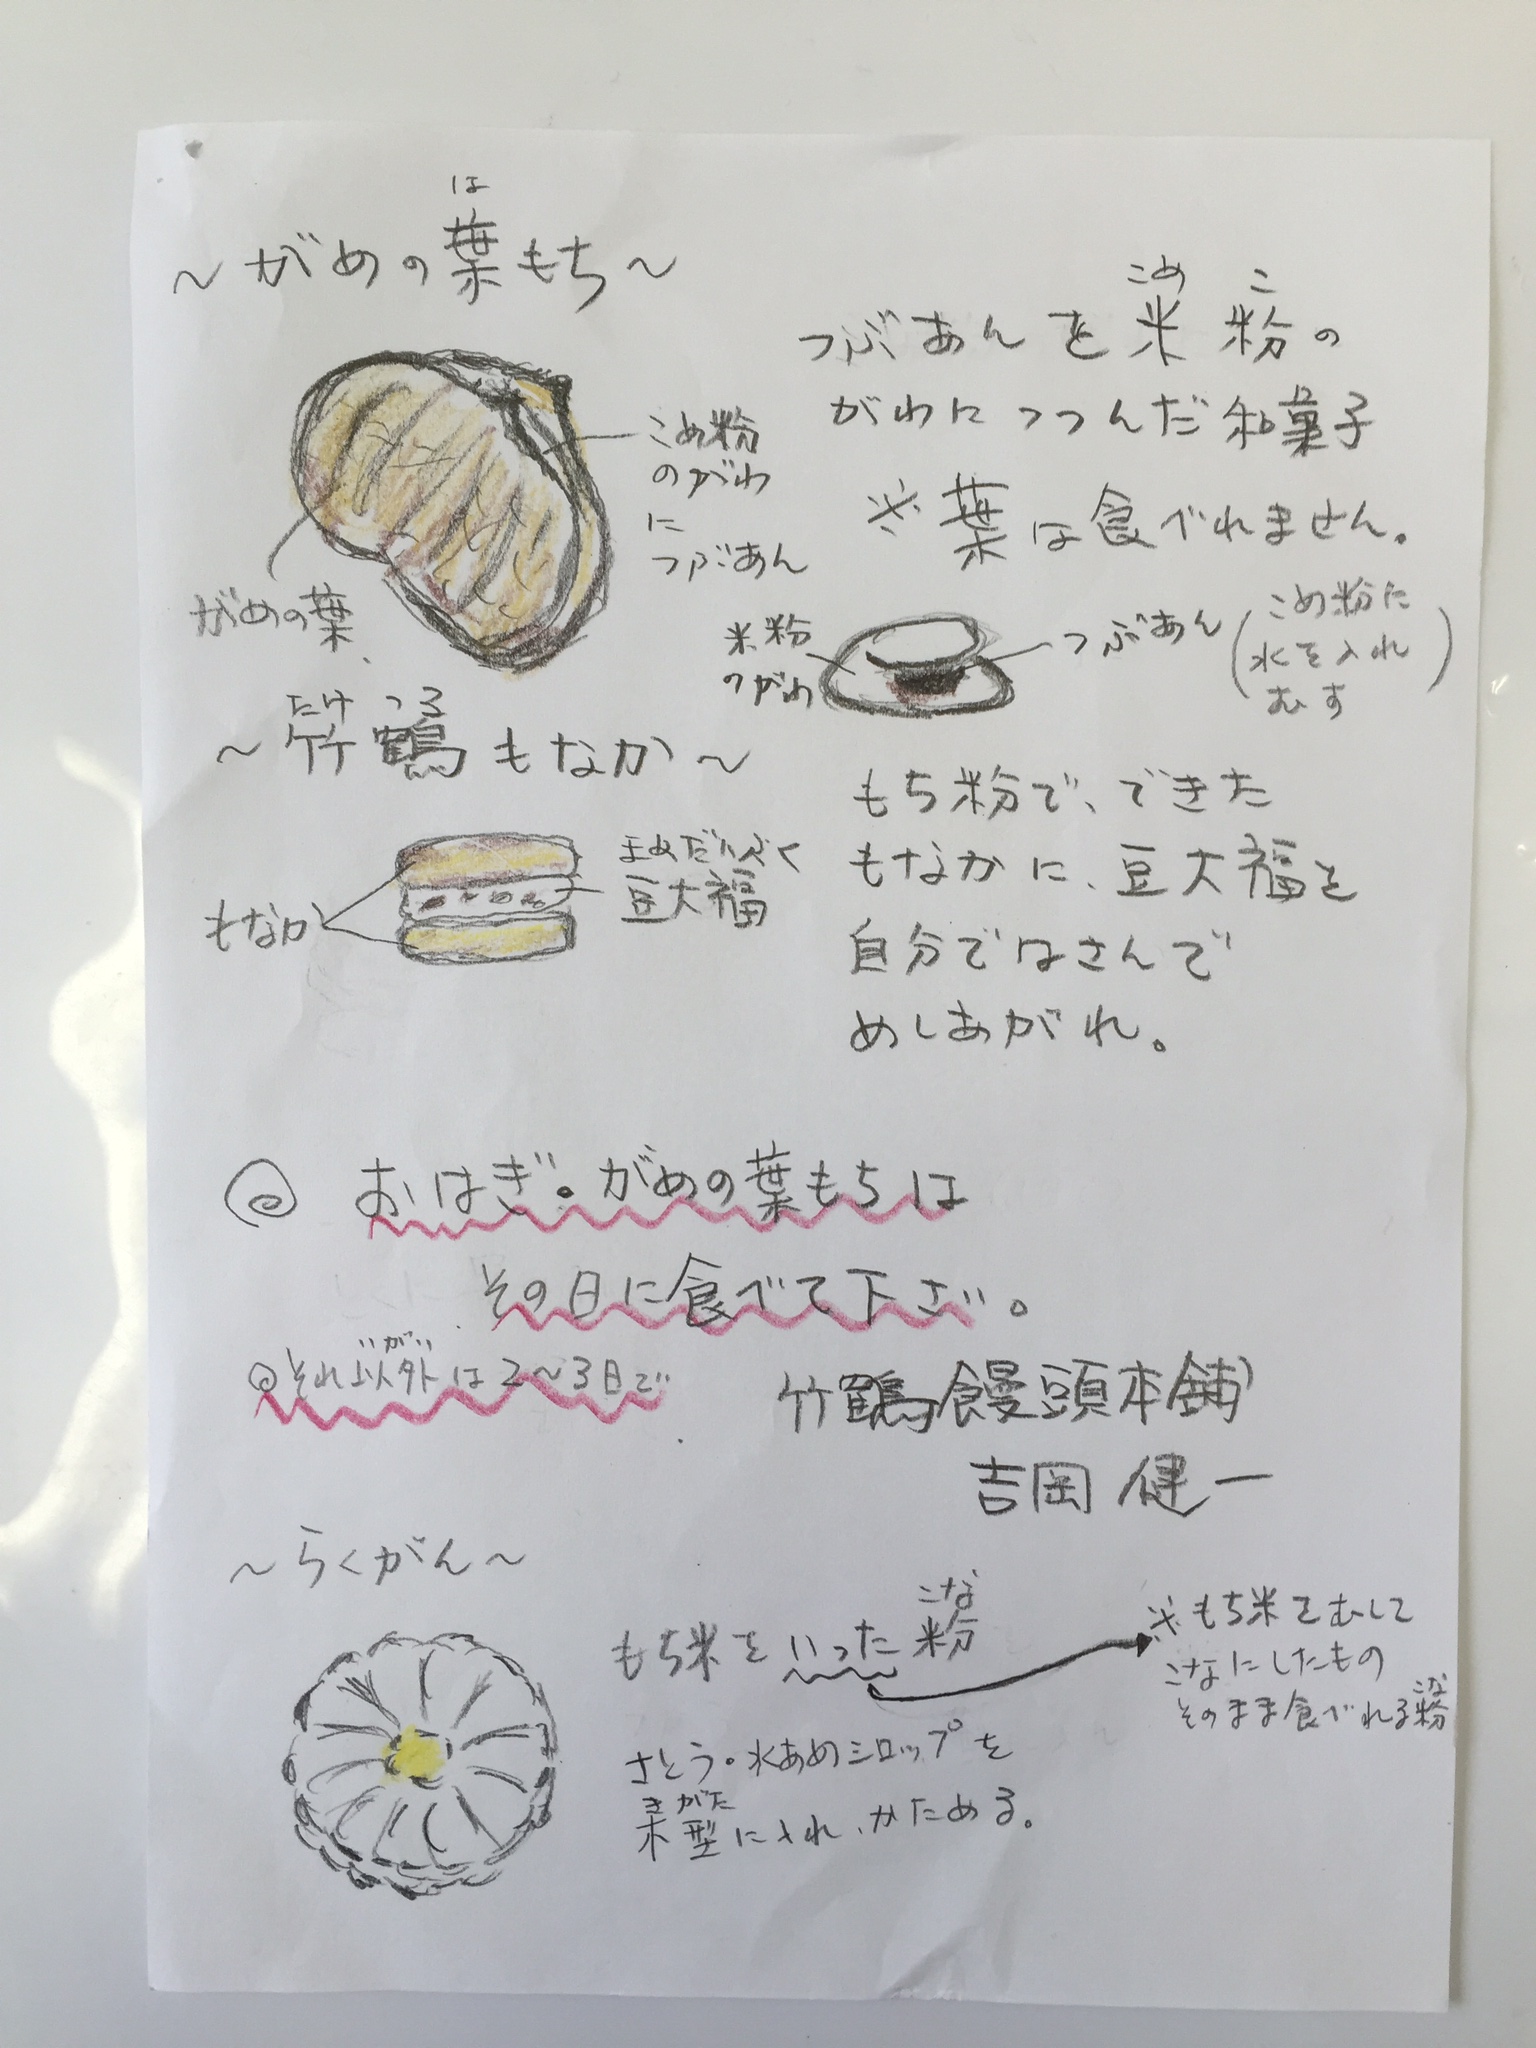 は
～がめの葉もち～
こめ こ
つぶあんを米粉の
がわにつつんだ和菓子
※葉は食べれません。
こめ粉
のがわ
に
つぶあん
がめの葉
米粉
のがわ
つぶあん
(こめ粉に
水を入れ
むす)
たけ つる
～竹鶴もなか～
もなか
まめだいふく
豆大福
もち粉で、できた
もなかに、豆大福を
自分ではさんで
めしあがれ。
◎ おはぎ。がめの葉もちは
その日に食べて下さい。
いがい
◎それ以外は2～3日で
竹鶴饅頭本舗
吉岡 健一
～らくがん～
こな
もち米をいった粉
※もち米をむして
こなにしたもの
こな
そのまま食べれる粉
さとう。水あめシロップを
き がた
木型に入れ、かためる。